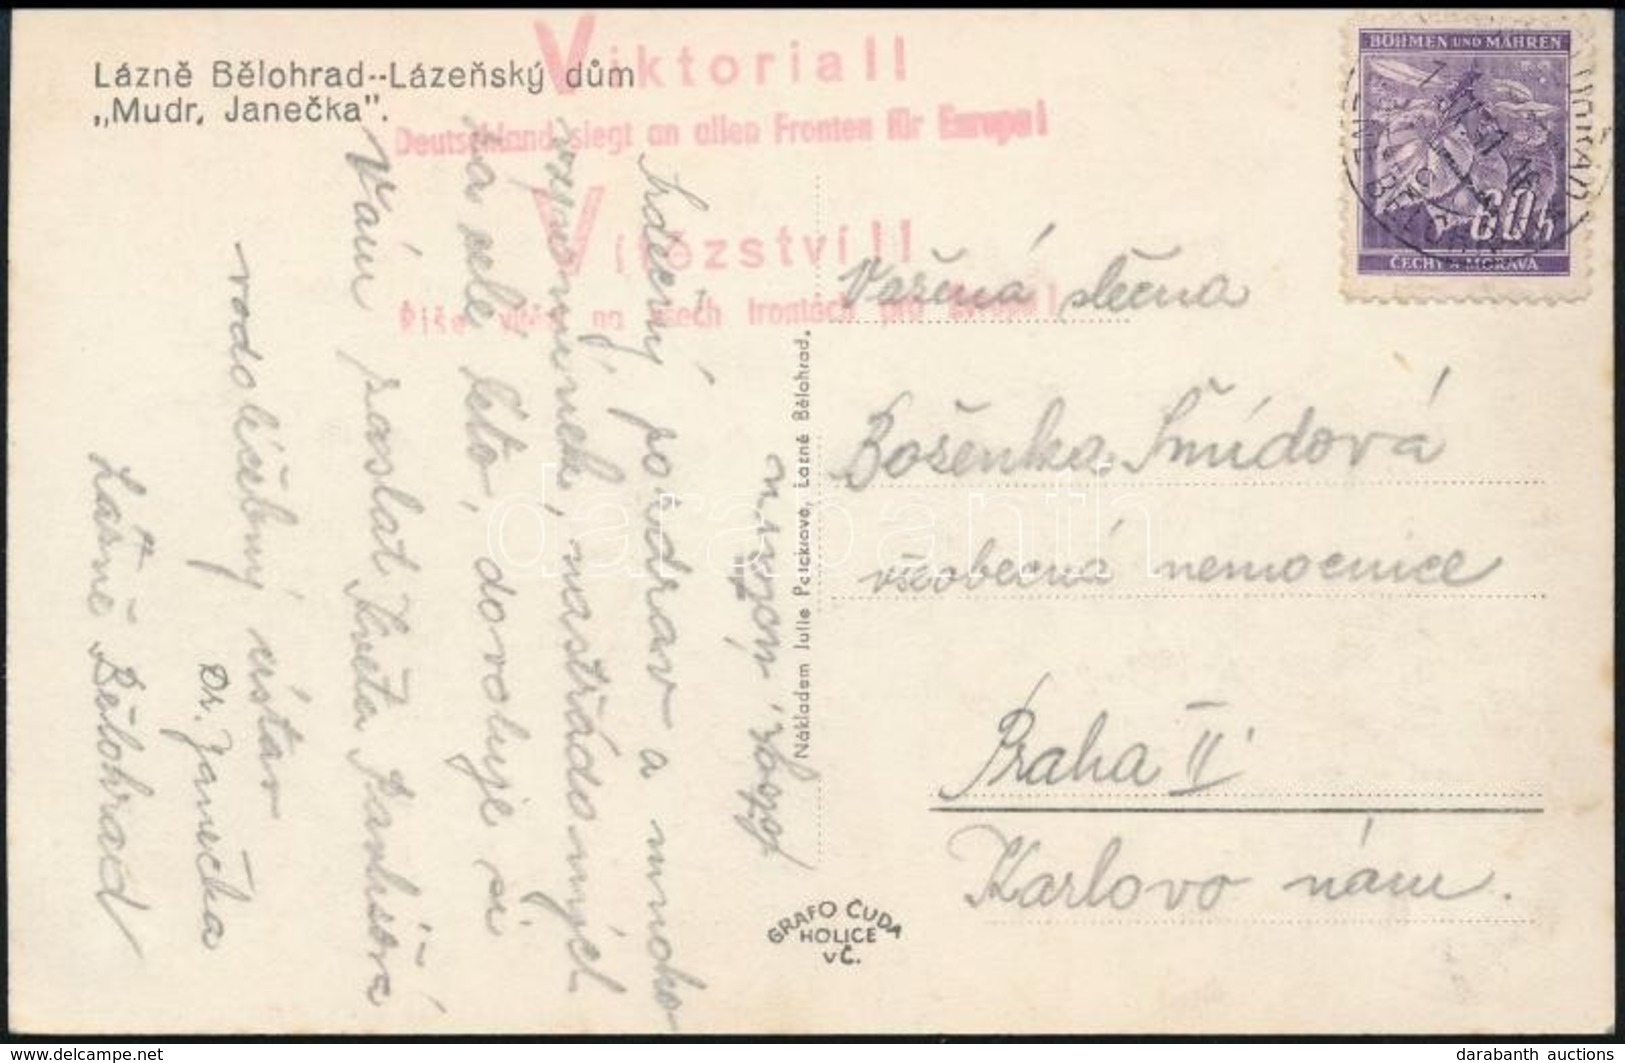 Lázně Bělohrad--Lázeňský dům
„Mudr, Janečka".
Viktoria!!
Deutschland siegt an allen Fronten für Europa!
Vítězství!!
Říše vítězí na všech frontách pro Evropu!
BÖHMEN UND MÄHREN
60h
ČECHY A MORAVA
Srdečný pozdrav a mnoho
vzpomínek, nastřádaných
za celé léto, dovoluje si
Vám zaslat Květa
vodoléčebný ústav
Dr. Janečka
Lázně Bělohrad
Nákladem Julie Peickrové, Lázně Bělohrad.
GRAFO ČUDA
HOLICE
v Č.
Vážená slečna
Boženka Šmídová
všeobecná nemocnice
Praha II
Karlovo nám.
darabanth
delcampe.net
darabanth auctions